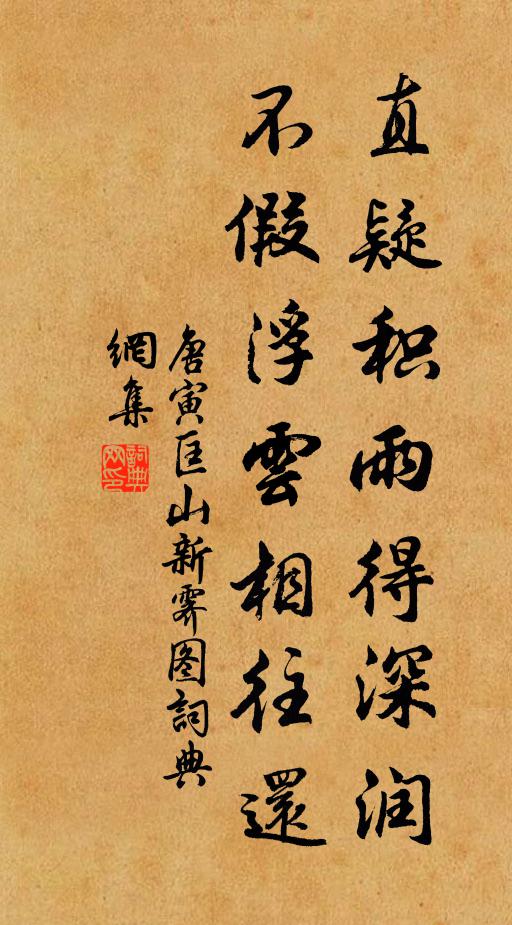 直疑积雨得深润
不假浮雲相往還
唐寅匡山新霽图詞典
網集
詞典網印